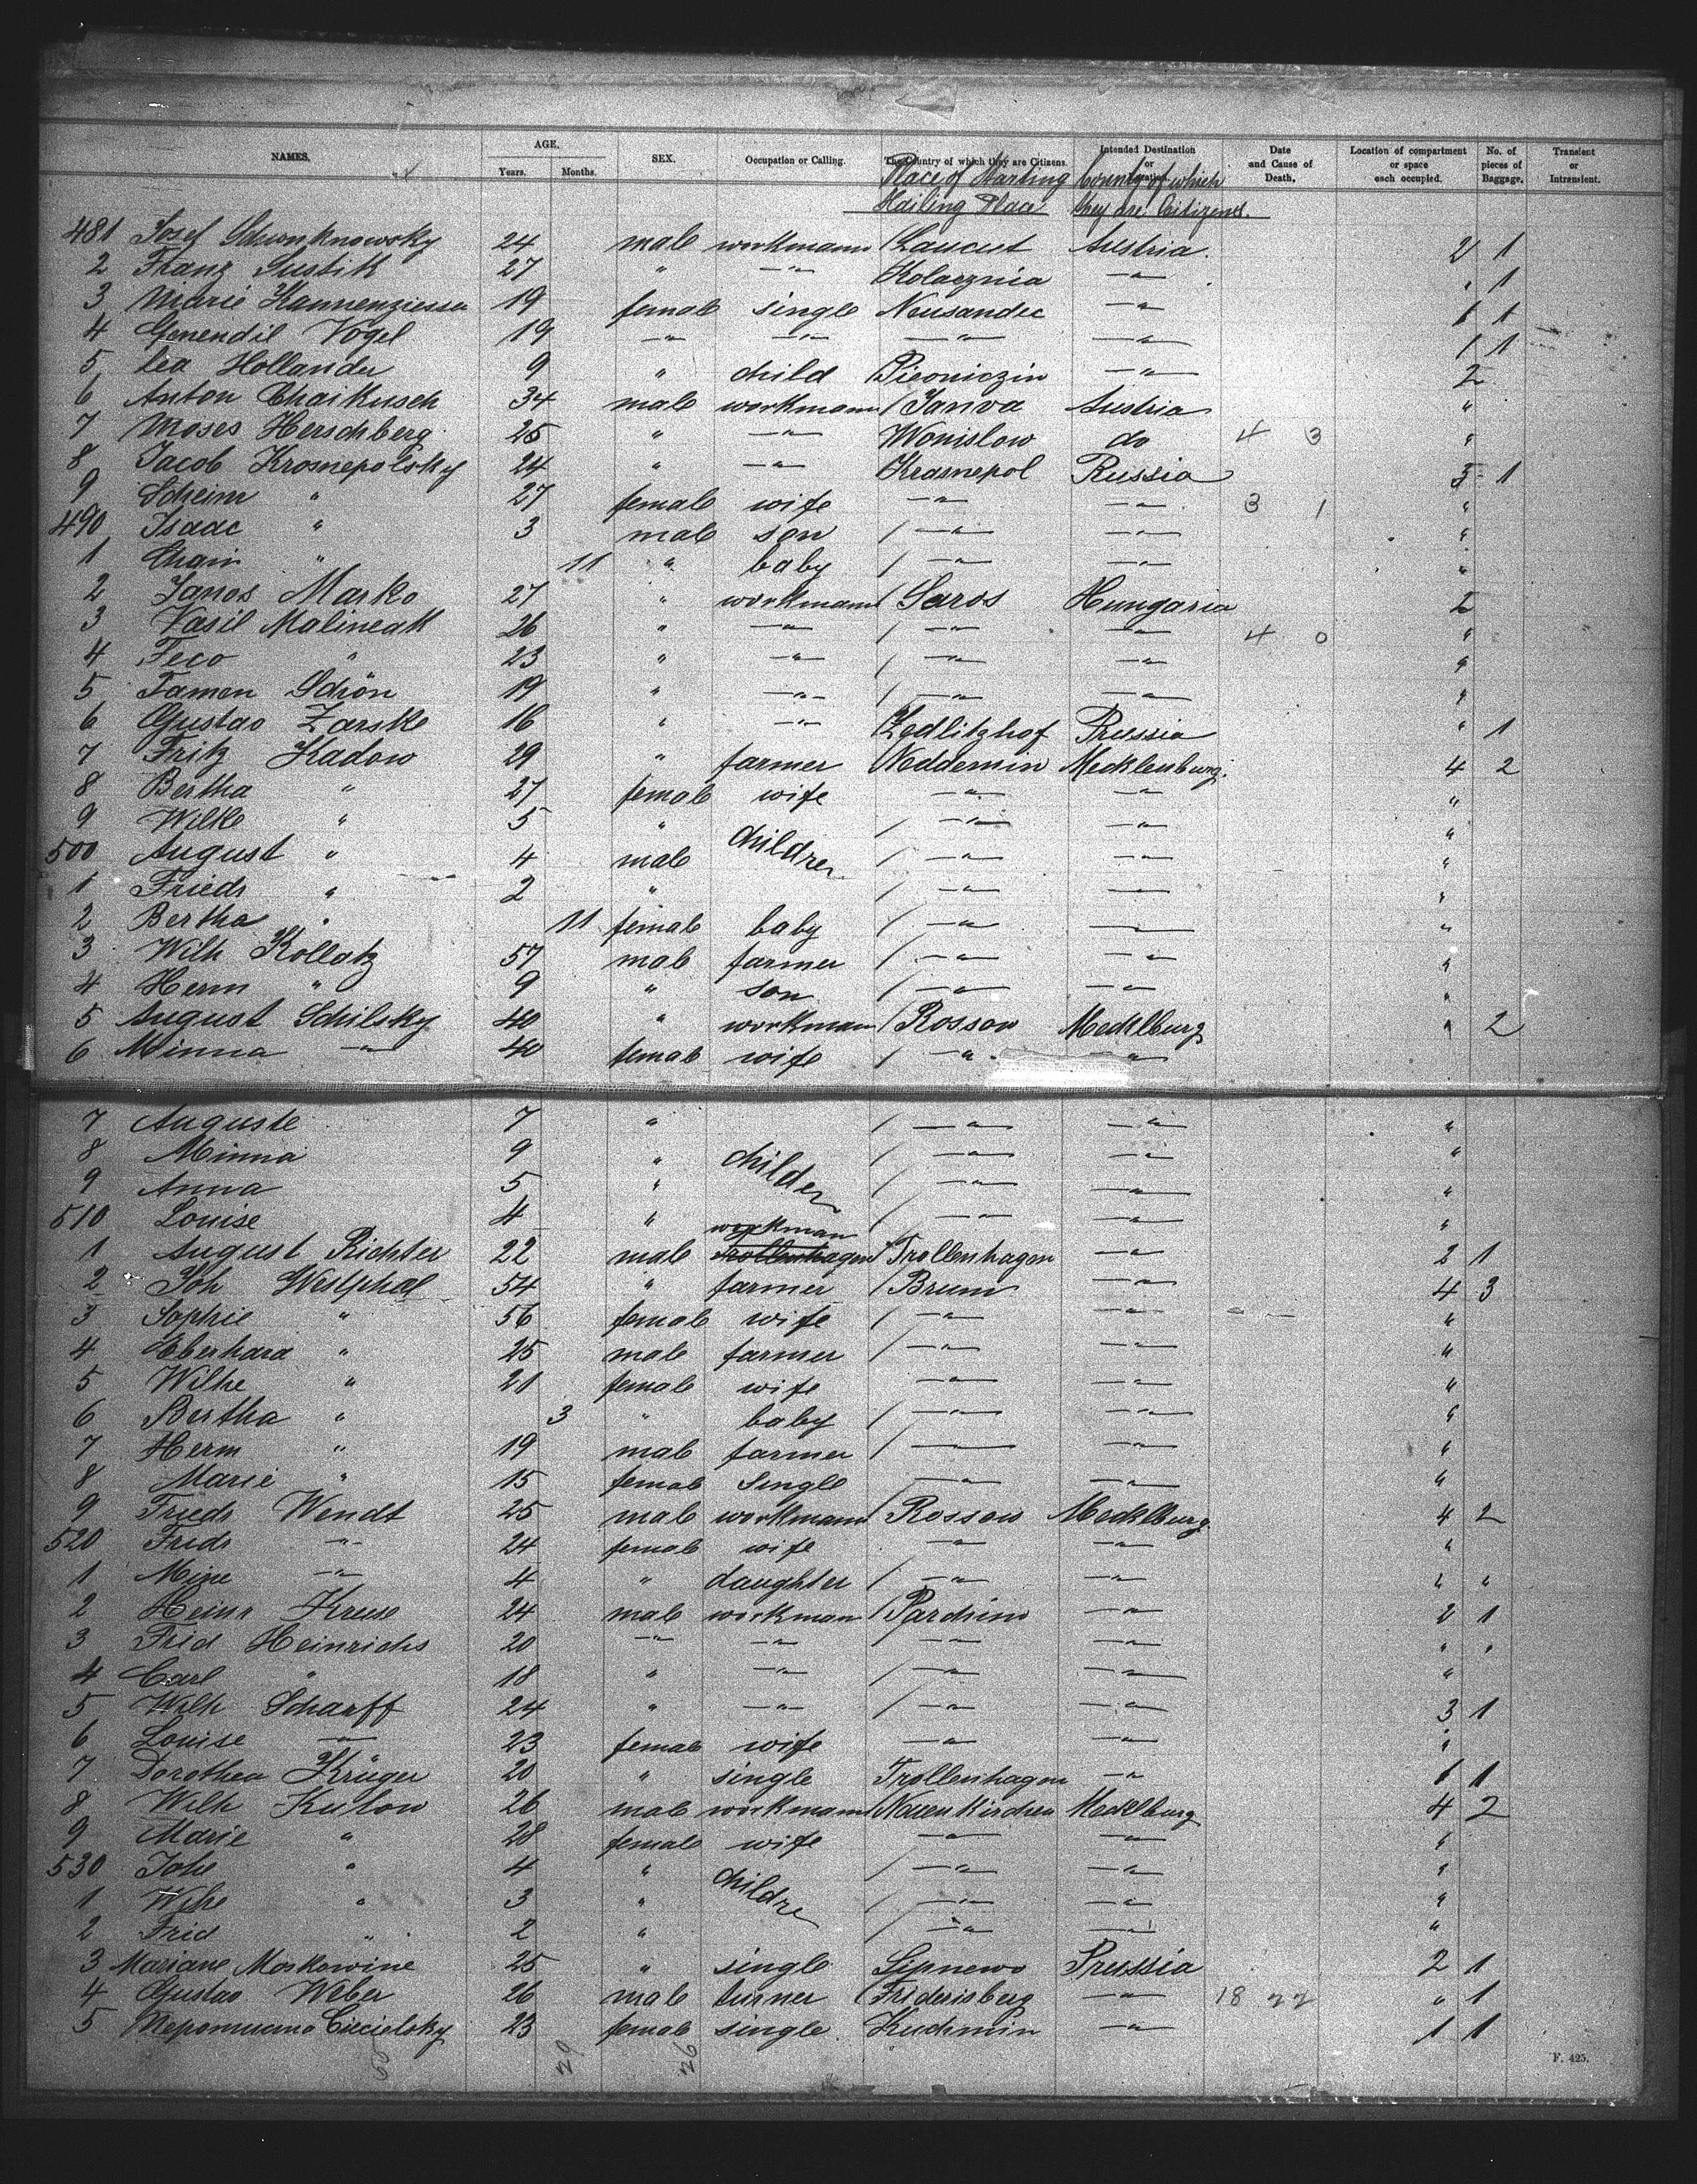 NAMES. AGE. SEX. Occupation or Calling. The Country of which they are Citizens. Intended Destination or Location. Date and Cause of Death. Location of compartment or space each occupied. No. of pieces of Baggage. Transient or Intransient.
Years. Months.
Place of Starting County of which
Hailing Place they are Citizens.
481 Josef 24 male workmann Lancut Austria. 2 1
2 Franz Sustik 27 " —"— Kolacznia —"— " 1
3 Marie 19 female single Neusandec —"— 1 1
4 Genendil Vogel 19 —"— —"— —"— —"— 1 1
5 Lea Hollander 9 " child —"— 2
6 Anton Chaikusch 34 male workmann Janva Austria "
7 Moses Herschberg 25 " —"— Wonislow do 4 3 "
8 Jacob Kromepolsky 24 " —"— Kramepol Russia 5 1
9 Scheim " 27 female wife —"— —"— 3 1 "
490 Isaac " 3 male son —"— —"— "
1 Chain " 11 " baby —"— —"— "
2 Janos Marko 27 " workmann Saros Hungaria 5
3 Vasil Malineak 26 " —"— —"— —"— 4 0 "
4 Feco " 23 " —"— —"— —"— "
5 Tamen Schön 19 " —"— —"— —"— "
6 Gustav Zarske 16 " —"— Zedlitzhof Prussia " 1
7 Fritz Kadow 29 " farmer Neddemin Mecklenburg. 4 2
8 Bertha " 27 female wife —"— —"— "
9 Wilke " 5 " children —"— —"— "
500 August " 4 male —"— —"— "
1 Friedr " 2 " —"— —"— "
2 Bertha " 11 female baby —"— —— "
3 Wilh Kollatz 57 male farmer —"— —"— "
4 Herm " 9 " son —"— —"— "
5 August Schilsky 40 " workman Rossow Mecklburg " 2
6 Minna —"— 40 female wife —"— —"—
7 Auguste 7 " —"— —"— "
8 Minna 9 " childen —"— —"— "
9 Anna 5 " —"— —"— "
510 Louise 4 " —"— —"— "
workman
1 August Richter 22 male Trollenhagen Trollenhagen —"— 2 1
2 Joh Westphal 54 " farmer Brunn —"— 4 3
3 Sophie " 56 female wife —"— —"— "
4 Eberhard " 25 male farmer —"— —"— "
5 Wilhe " 21 female wife —"— —"— "
6 Bertha " 3 " baby —"— —"— "
7 Herm " 19 male farmer —"— —"— "
8 Marie " 15 female single —"— —"— "
9 Friedr Wendt 25 male workmann Rossow Mecklburg. 4 2
520 Fridr —"— 24 female wife —"— —"— "
1 Mine —"— 4 " daughter —"— —"— " "
2 Heinr Kruse 24 male workman Parchim —"— 2 1
3 Frid Heinrichs 20 —"— —"— —"— —"— " "
4 Carl " 18 " —"— —"— —"— "
5 Wilh Scharff 24 " —"— —"— —"— 3 1
6 Louise —"— 23 female wife —"— —"— "
7 Dorothea Krüger 20 " single Trollenhagen —"— 1 1
8 Wilh Kulow 26 male workmann Neuenkirchen Mecklburg 4 2
9 Marie " 28 female wife —"— —"— "
530 Johe " 4 " childre —"— —"— "
1 Wilhe " 3 " —"— —"— "
2 Frid " 2 " —"— —"— "
3 Mariane Moskowine 25 " single Lipnewo Prussia 2 1
4 Gustav Weber 26 male turner Friderisberg —"— 18 22 " 1
5 Cziecielsky 23 female single. Kuchmin —"— 1 1
29 26
F. 425.